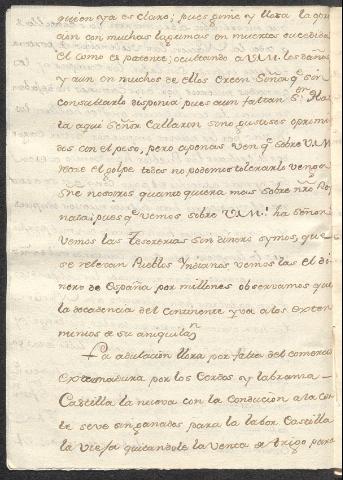 quien ya es claro; pues gime y llora la opre
cion con muchas lagrimas en muertos sucedidos
el como es patente; ocultando a V.M. los daños
y aun en muchos de ellos creen Señor q.e sin
consultarlo disponia pues aun faltan S.or Has
ta aqui Señor Callaron sino gustosos oprimi
dos con el peso, pero apenas ven q.e sobre V.M.
trae el golpe todos no podemos tolerarlo venga
S.or sobre nosotros quanto quiera mas sobre nro
pues q.e vemos sobre V.M.! ha señor!
vemos las Tesorerias sin dinero symos, que
se releran Pueblos Yndianos vemos las el di
nero de España por millones observamos que
la decadencia del Continente yva a los exter
minios de su aniquilan
La adulación llora por falta del comercio
extremadura por los Cerdos y labranza
Castilla la nueva con la Condución a la cor
te seve sin ganados para la labor Castilla
la vieja quitandole la venta de trigo para